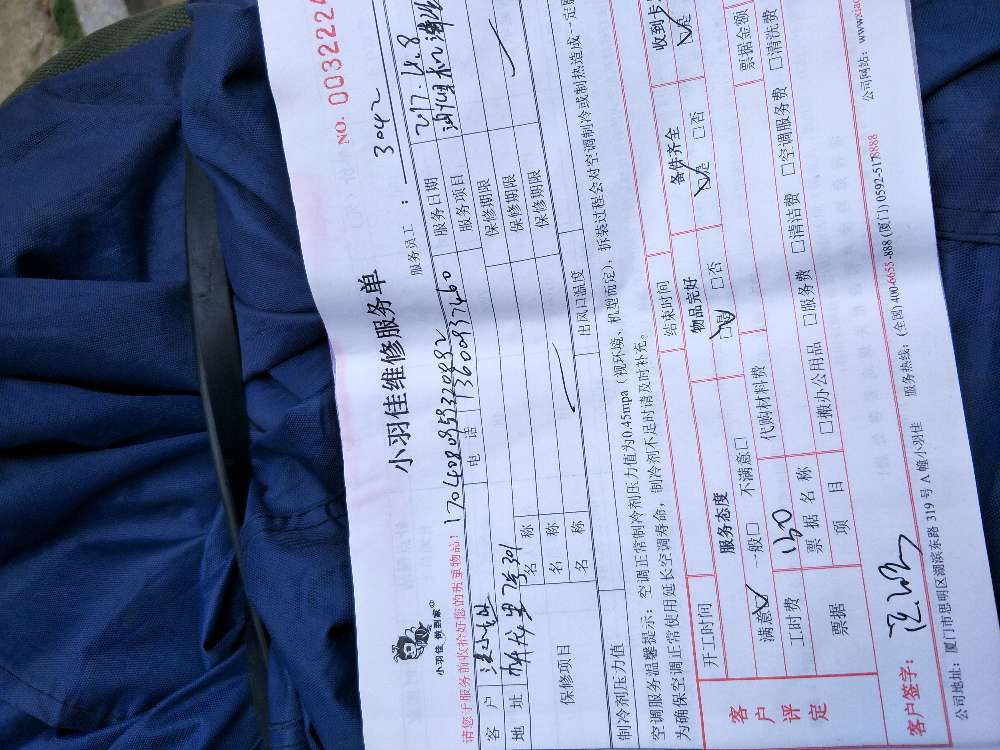 NO. 0032224
小羽佳 做到家
小羽佳维修服务单
服务员工： 3042
请您于服务前收拾好您的贵重物品！ 17040809593220832
客户 电话 13600937460 服务日期 2017.4.8
地址 301 服务项目 油烟机清洗
保修项目 名称 保修期限
名称 保修期限
名称 保修期限
制冷剂压力值 出风口温度
空调服务温馨提示：空调正常制冷剂压力值为0.45mpa（视环境、机型而定），拆装过程会对空调制冷或制热造成一定
为确保空调正常使用延长空调寿命，制冷剂不足时请及时补充。
客户评定 开工时间 结束时间
服务态度 物品完好 备件齐全 收到卡
满意☑ 一般□ 不满意□ ☑是 □否 ☑是 □否 ☑是
工时费 代购材料费 票据金额
票据 票据名称 □搬办公用品 □服务费 □清洁费 □空调服务费 □清洗费
项目
客户签字：
公司地址：厦门市思明区湖滨东路319号A幢小羽佳 服务热线：(全国)400-6655-888 (厦门)0592-5178888 公司网站：www.xiao